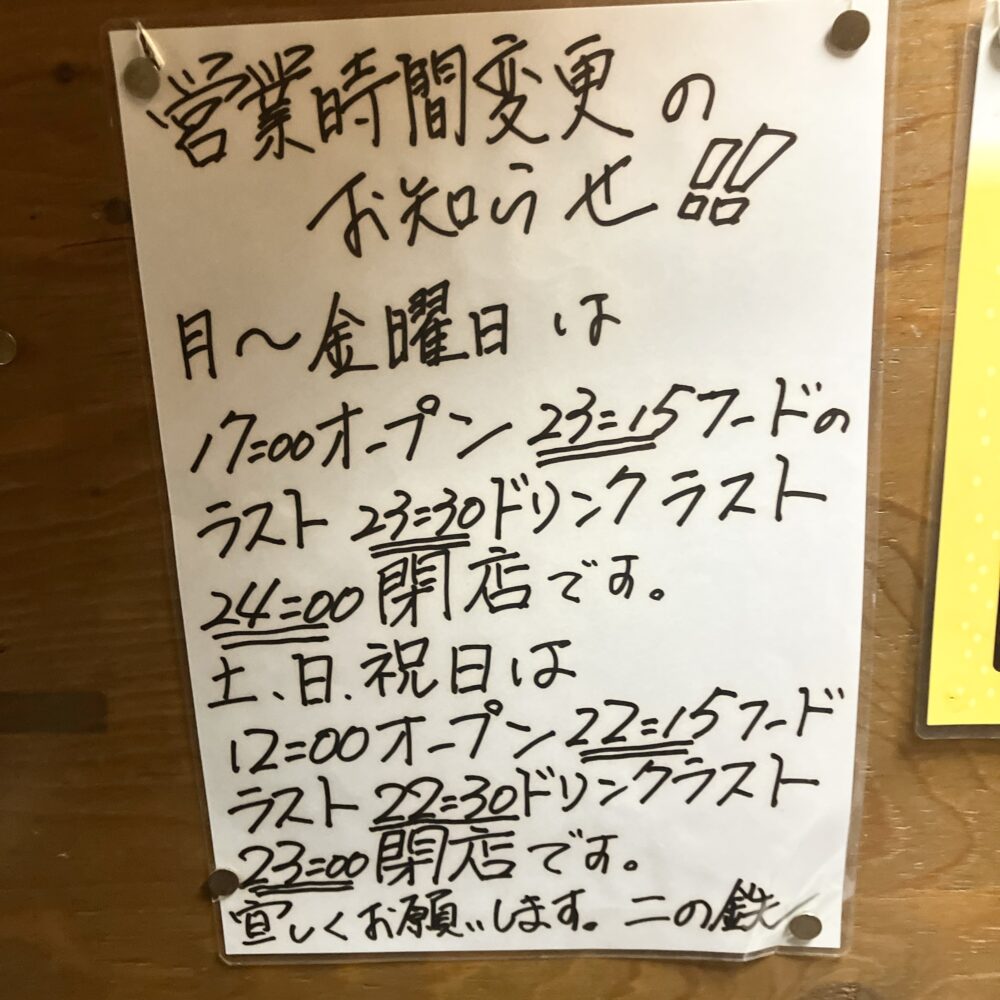 営業時間変更の
お知らせ!!
月～金曜日は
17:00オープン 23:15フードの
ラスト 23:30ドリンクラスト
24:00閉店です。
土、日、祝日は
12:00オープン22:15フード
ラスト 22:30ドリンクラスト
23:00閉店です。
宜しくお願いします。二の鉄